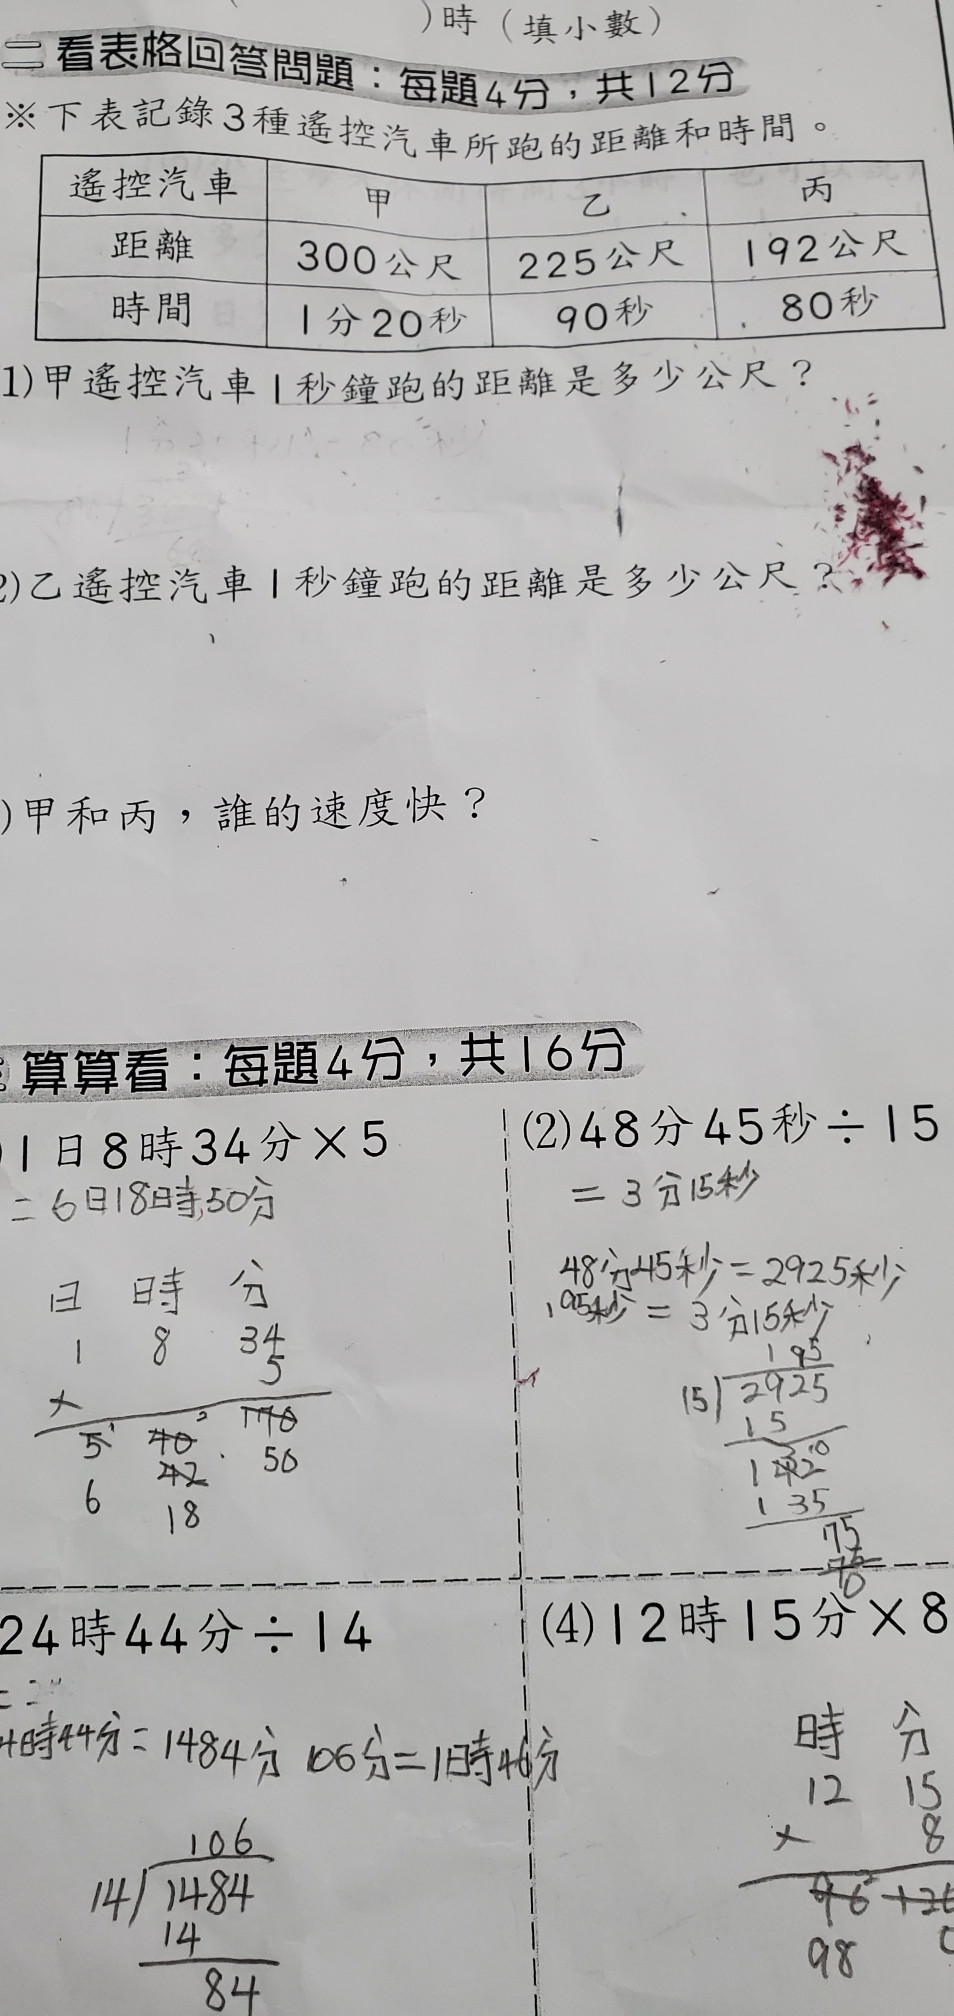 )時（填小數）
二 看表格回答問題：每題4分，共12分
※下表記錄3種遙控汽車所跑的距離和時間。
遙控汽車 甲 乙 丙
距離 300公尺 225公尺 192公尺
時間 1分20秒 90秒 80秒
1)甲遙控汽車1秒鐘跑的距離是多少公尺？
2)乙遙控汽車1秒鐘跑的距離是多少公尺？
)甲和丙，誰的速度快？
算算看：每題4分，共16分
)1日8時34分×5
=6日18時50分
日 時 分
1 8 34
× 5
5 40 170
42 50
6 18
(2)48分45秒÷15
=3分15秒
48分45秒=2925秒
195秒=3分15秒
195
15)2925
15
142
135
75
75
0
24時44分÷14
4時44分=1484分 106分=1時46分
106
14)1484
14
84
(4)12時15分×8
時 分
12 15
× 8
96 120
98